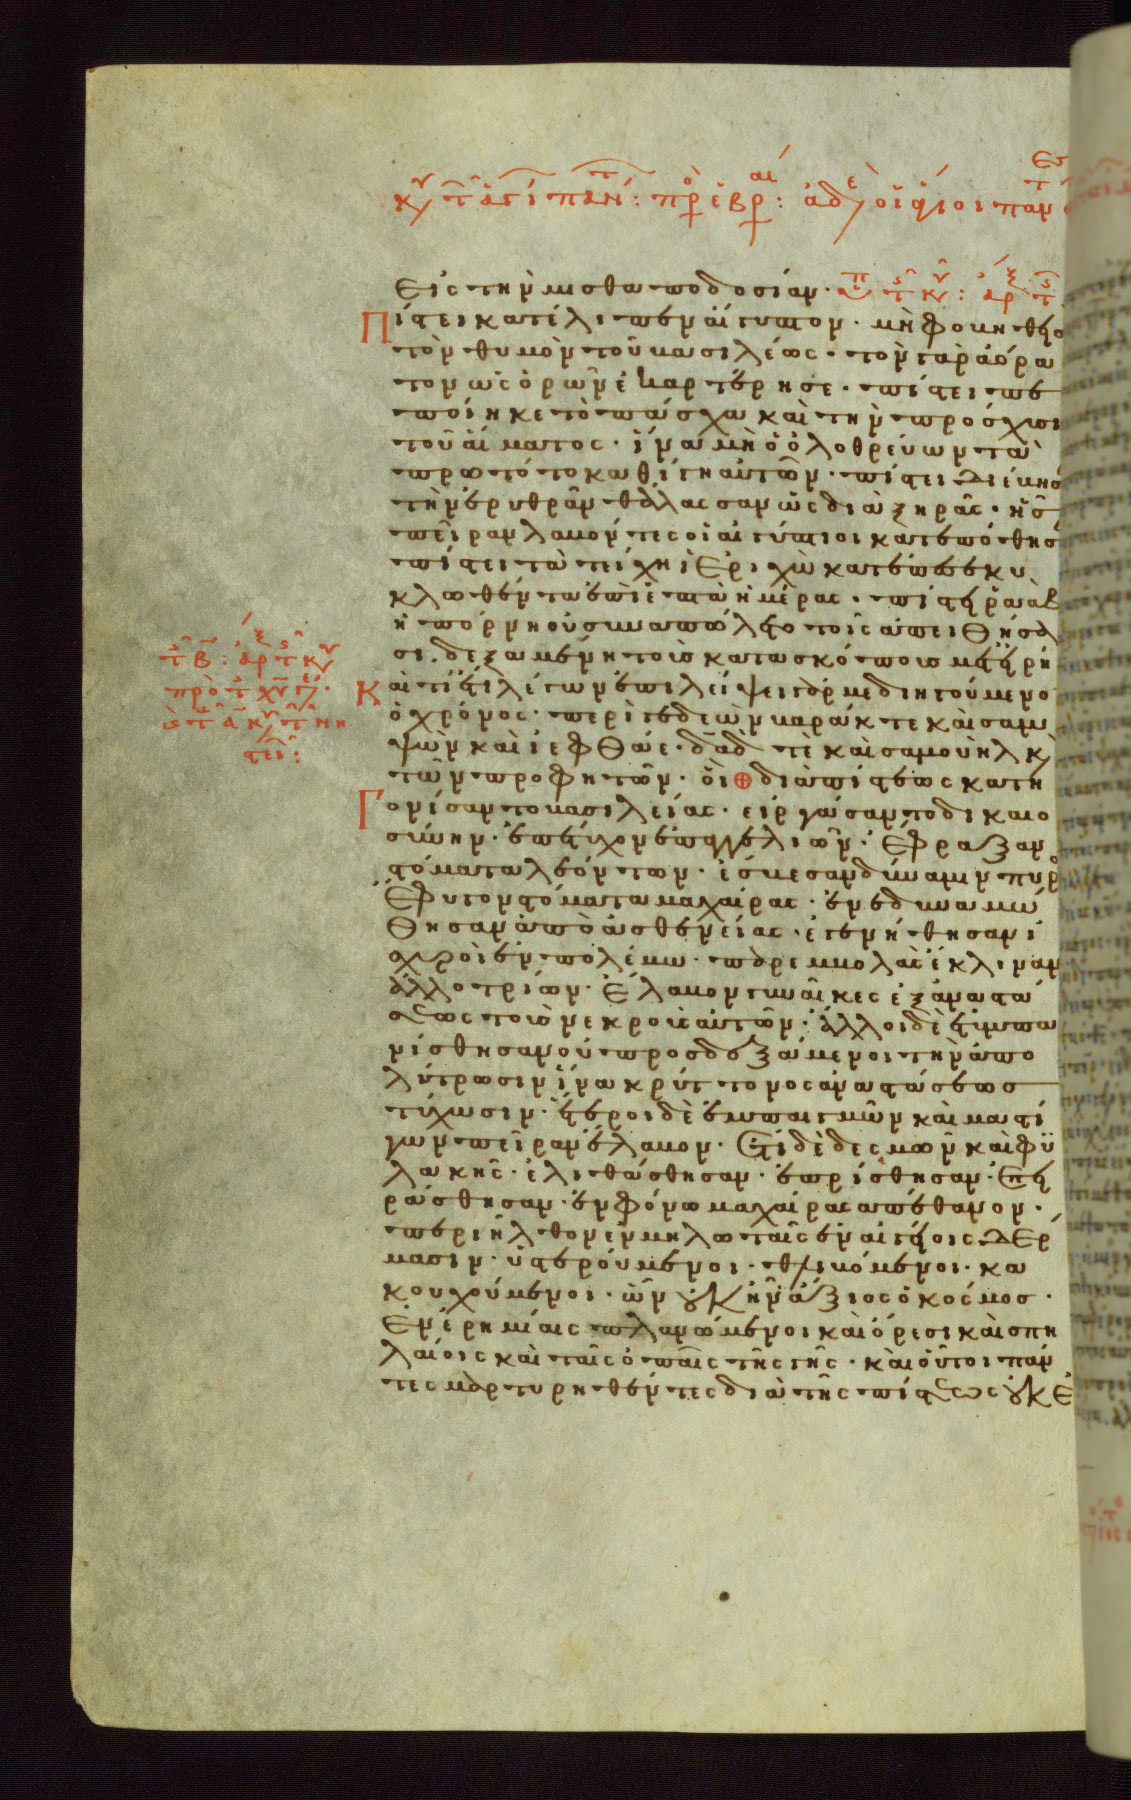 εἰς τὴν μισθαποδοσίαν·
Πίστει κατέλιπεν αἴγυπτον· μὴ φοβηθεὶς
τὸν θυμὸν τοῦ βασιλέως· τὸν γὰρ ἀόρα
τον ὡς ὁρῶν ἐκαρτέρησε· πίστει πε
ποίηκε τὸ πάσχα καὶ τὴν πρόσχυσι
τοῦ αἵματος· ἵνα μὴ ὁ ὀλοθρεύων τὰ
πρωτότοκα θίγη αὐτῶν· πίστει διέβησ
τὴν ἐρυθρὰν θάλασσαν ὡς διὰ ξηρᾶς· ἧς
πεῖραν λαβόντες οἱ αἰγύπτιοι κατεπόθησ
πίστει τὰ τείχη ἱεριχὼ κατέπεσε κυ
κλωθέντα ἐπὶ ἑπτὰ ἡμέρας· πίστει ῥαὰβ
ἡ πόρνη οὐ συναπώλετο τοῖς ἀπειθήσα
σι· δεξαμένη τοὺς κατασκόπους μετ εἰρή
Καὶ τί ἔτι λέγω· ἐπιλείψει γάρ με διηγούμενο
ὁ χρόνος· περὶ γεδεὼν βαράκ τε καὶ σαμ
ψὼν καὶ ἰεφθάε· δαδ τὲ καὶ σαμουὴλ κ
τῶν προφητῶν· οἳ ⊕ διὰ πίστεως κατη
Γονίσαντο βασιλείας· εἰργάσαντο δικαιο
σύνην· ἐπέτυχον ἐπαγγελιῶν· ἔφραξαν
στόματα λεόντων· ἔσβεσαν δύναμιν πυρ
ἔφυγον στόματα μαχαίρας· ἐνεδυναμώ
θησαν ἀπὸ ἀσθενείας· ἐγενήθησαν ἰ
σχυροὶ ἐν πολέμω· παρεμβολὰς ἔκλιναν
ἀλλοτρίων· ἔλαβον γυναῖκες ἐξ ἀναστά
σεως τοὺς νεκροὺς αὐτῶν· ἄλλοι δὲ ἐτυμπα
νίσθησαν οὐ προσδεξάμενοι τὴν ἀπο
λύτρωσιν ἵνα κρείττονος ἀναστάσεως
τύχωσιν· ἕτεροι δὲ ἐμπαιγμῶν καὶ μαστί
γων πεῖραν ἔλαβον· ἔτι δὲ δεσμῶν καὶ φυ
λακῆς· ἐλιθάσθησαν· ἐπρίσθησαν· ἐπει
ράσθησαν· ἐν φόνω μαχαίρας ἀπέθανον·
περιῆλθον ἐν μηλωταῖς ἐν αἰγείοις δέρ
μασιν· ὑστερούμενοι· θλιβόμενοι· κα
κουχούμενοι· ὧν οὐκ ἦν ἄξιος ὁ κόσμος·
ἐν ἐρημίαις πλανώμενοι καὶ ὄρεσι καὶ σπη
λαίοις καὶ ταῖς ὀπαῖς τῆς γῆς· καὶ οὗτοι πάν
τες μαρτυρηθέντες διὰ τῆς πίστεως οὐκ ἐ